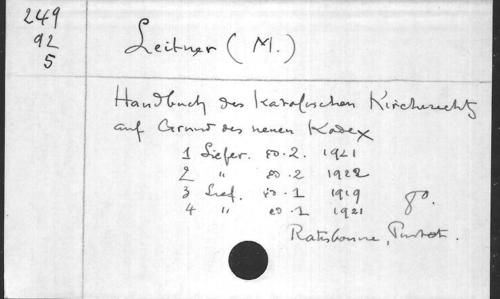 249
92
5
Leitner (M.)
Handbuch des katholischen Kirchenrechts
auf Grund des neuen Kodex
1 Liefer. éd. 2. 1921
2 " éd. 2 1922
3 Lief. éd. 1 1919
4 " éd. 1 1921
8o.
Ratisbonne, Pustet.